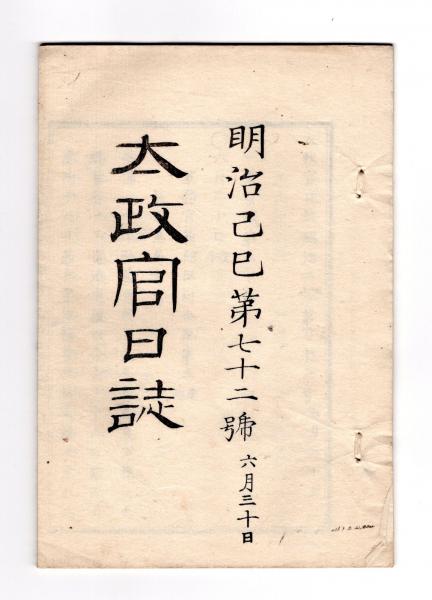 明治己巳第七十二號 六月三十日
太政官日誌